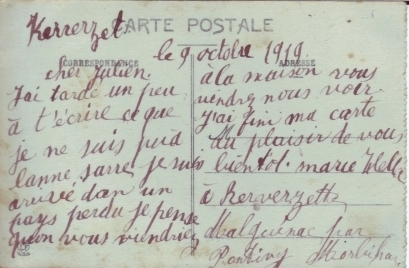 Kerrerzet
CARTE POSTALE
le 9 octobre 1919
CORRESPONDANCE
ADRESSE
cher Julien
J'ai tardé un peu
à t'écrire ce que
je ne suis puid
lanne sarre je suis
arrivé dan un
pays perdu je pense
quon vous viendriez
a la maison vous
viendrez nous voir
j'ai fini ma carte
Au plaisir de vous
bientot. marie
à Kerverzet
Malguenac par
Pontivy Morbihan